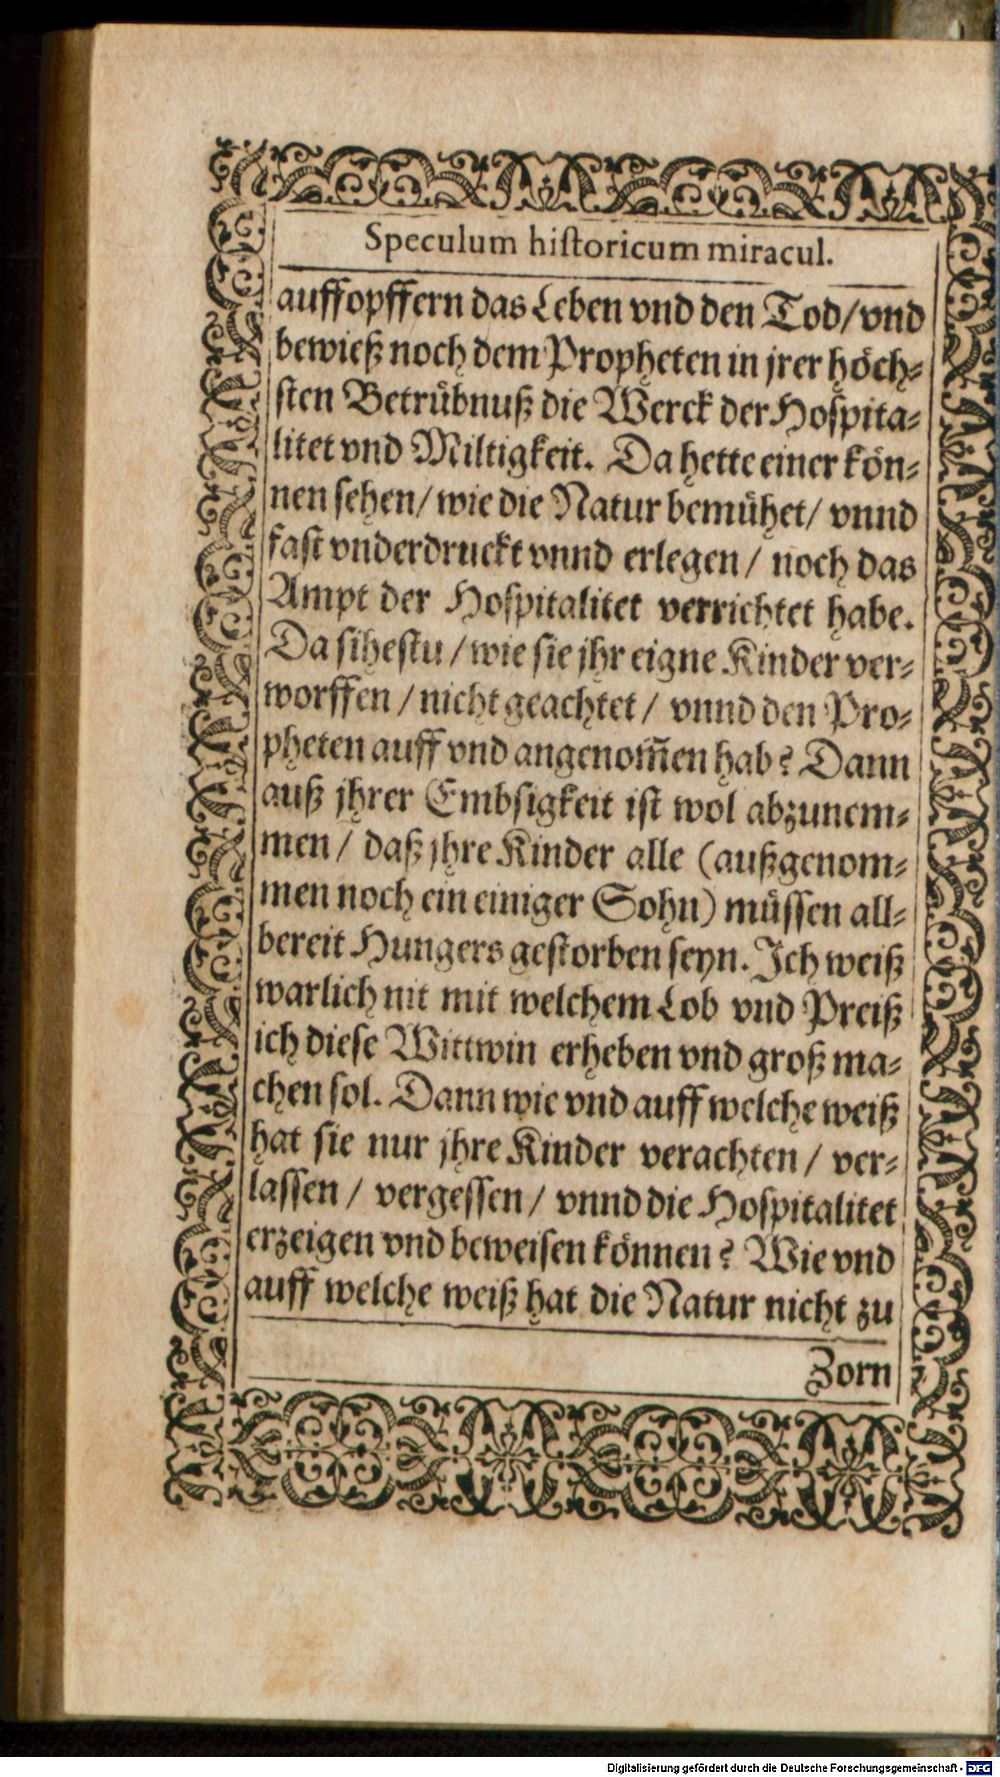 Speculum historicum miracul.
auffopffern das Leben vnd den Tod/vnd
bewieß noch dem Propheten in jrer höch-
sten Betrübnuß die Werck der Hospita-
litet vnd Miltigkeit. Da hette einer kön-
nen sehen/ wie die Natur bemühet/ vnnd
fast vnderdruckt vnnd erlegen / noch das
Ampt der Hospitalitet verrichtet habe.
Da sihestu / wie sie jhr eigne Kinder ver-
worffen / nicht geachtet / vnnd den Pro-
pheten auff vnd angenom̃en hab? Dann
auß jhrer Embsigkeit ist wol abzunem-
men / daß jhre Kinder alle (außgenom-
men noch ein einiger Sohn) müssen all-
bereit Hungers gestorben seyn. Ich weiß
warlich nit mit welchem Lob vnd Preiß
ich diese Wittwin erheben vnd groß ma-
chen sol. Dann wie vnd auff welche weiß
hat sie nur jhre Kinder verachten / ver-
lassen / vergessen / vnnd die Hospitalitet
erzeigen vnd beweisen können? Wie vnd
auff welche weiß hat die Natur nicht zu
Zorn
Digitalisierung gefördert durch die Deutsche Forschungsgemeinschaft - DFG